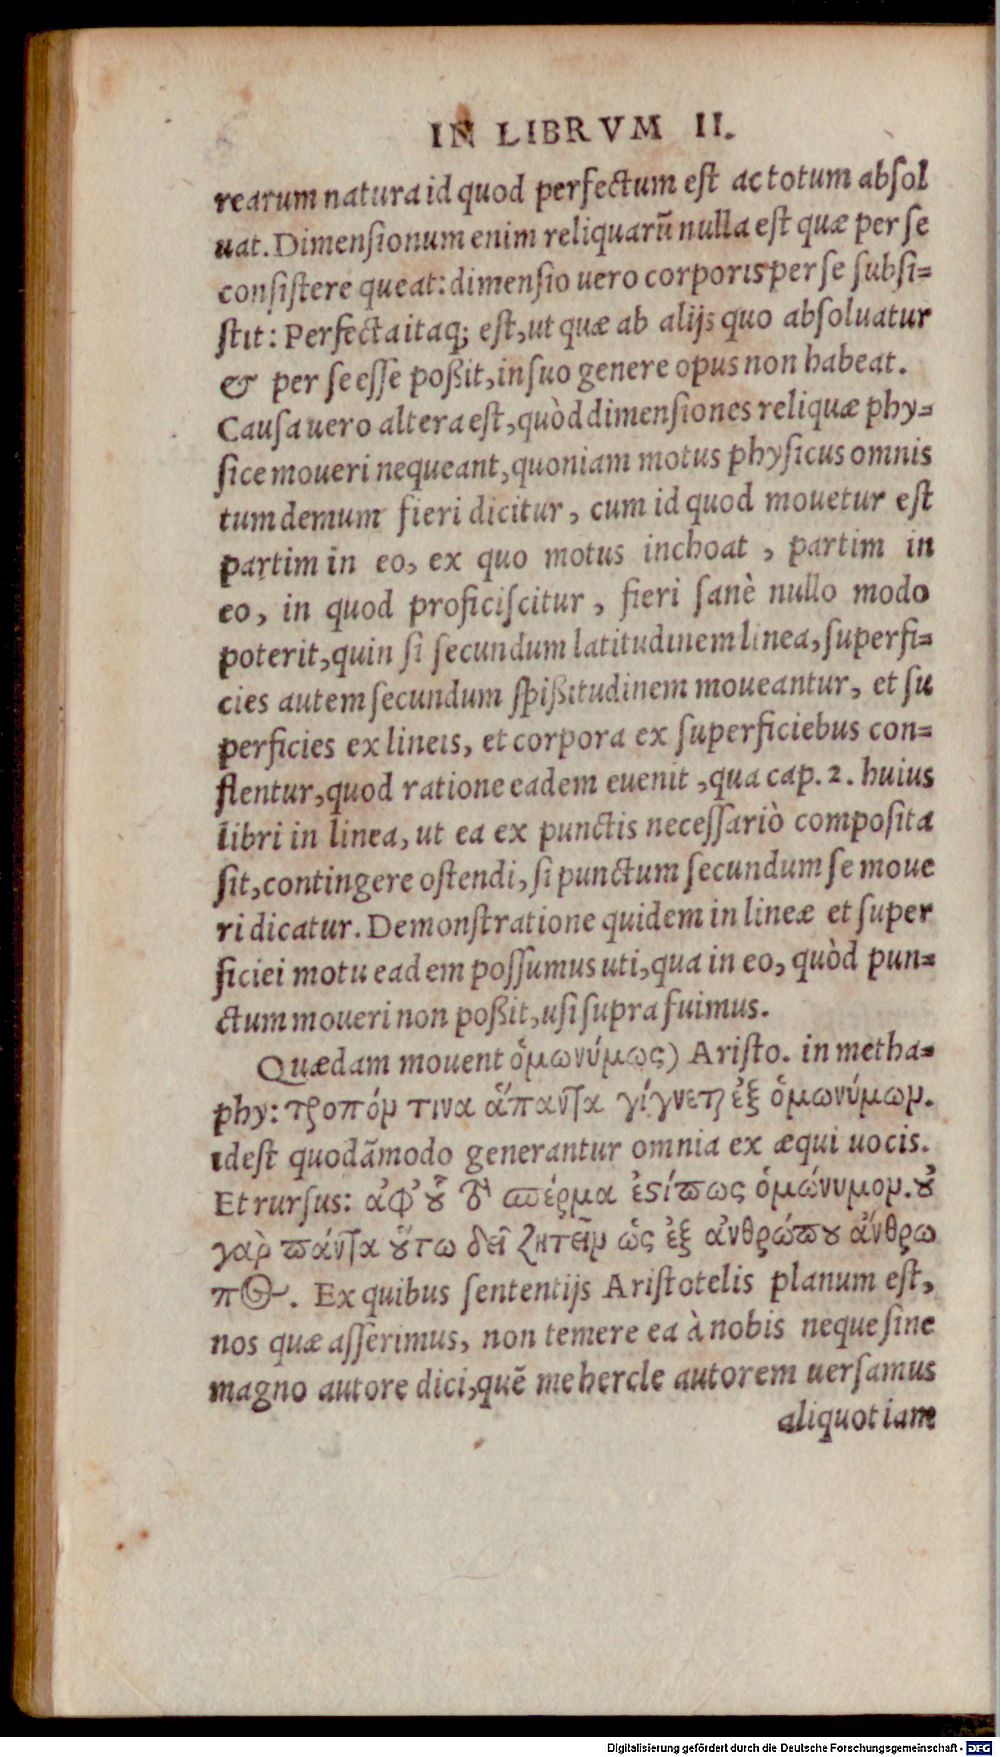 IN LIBRVM II.
rearum natura id quod perfectum est ac totum absol
uat. Dimensionum enim reliquarũ nulla est quæ per se
consistere queat: dimensio uero corporis per se subsi=
stit: Perfecta itaq; est, ut quæ ab alijs quo absoluatur
& per se esse poßit, in suo genere opus non habeat.
Causa uero altera est, quòd dimensiones reliquæ phy=
sice moueri nequeant, quoniam motus physicus omnis
tum demum fieri dicitur, cum id quod mouetur est
partim in eo, ex quo motus inchoat, partim in
eo, in quod proficiscitur, fieri sanè nullo modo
poterit, quin si secundum latitudinem linea, superfi=
cies autem secundum spißitudinem moueantur, et su
perficies ex lineis, et corpora ex superficiebus con=
flentur, quod ratione eadem euenit, qua cap. 2. huius
libri in linea, ut ea ex punctis necessariò composita
sit, contingere ostendi, si punctum secundum se moue
ri dicatur. Demonstratione quidem in lineæ et super
ficiei motu eadem possumus uti, qua in eo, quòd pun=
ctum moueri non poßit, usi supra fuimus.
Quædam mouent ὁμωνύμως) Aristo. in metha=
phy: τροπόν τινα ἅπαντα γίγνεται ἐξ ὁμωνύμων.
idest quodãmodo generantur omnia ex æqui uocis.
Et rursus: ἀφ' οὗ τὸ σπέρμα ἐστί πως ὁμώνυμον. οὐ
γαρ̀ πάντα οὕτω δεῖ ζητεῖν ὡς ἐξ ἀνθρώπου ἄνθρω
πος. Ex quibus sententijs Aristotelis planum est,
nos quæ asserimus, non temere ea à nobis neque sine
magno autore dici, quẽ mehercle autorem uersamus
aliquot iam
Digitalisierung gefördert durch die Deutsche Forschungsgemeinschaft - DFG